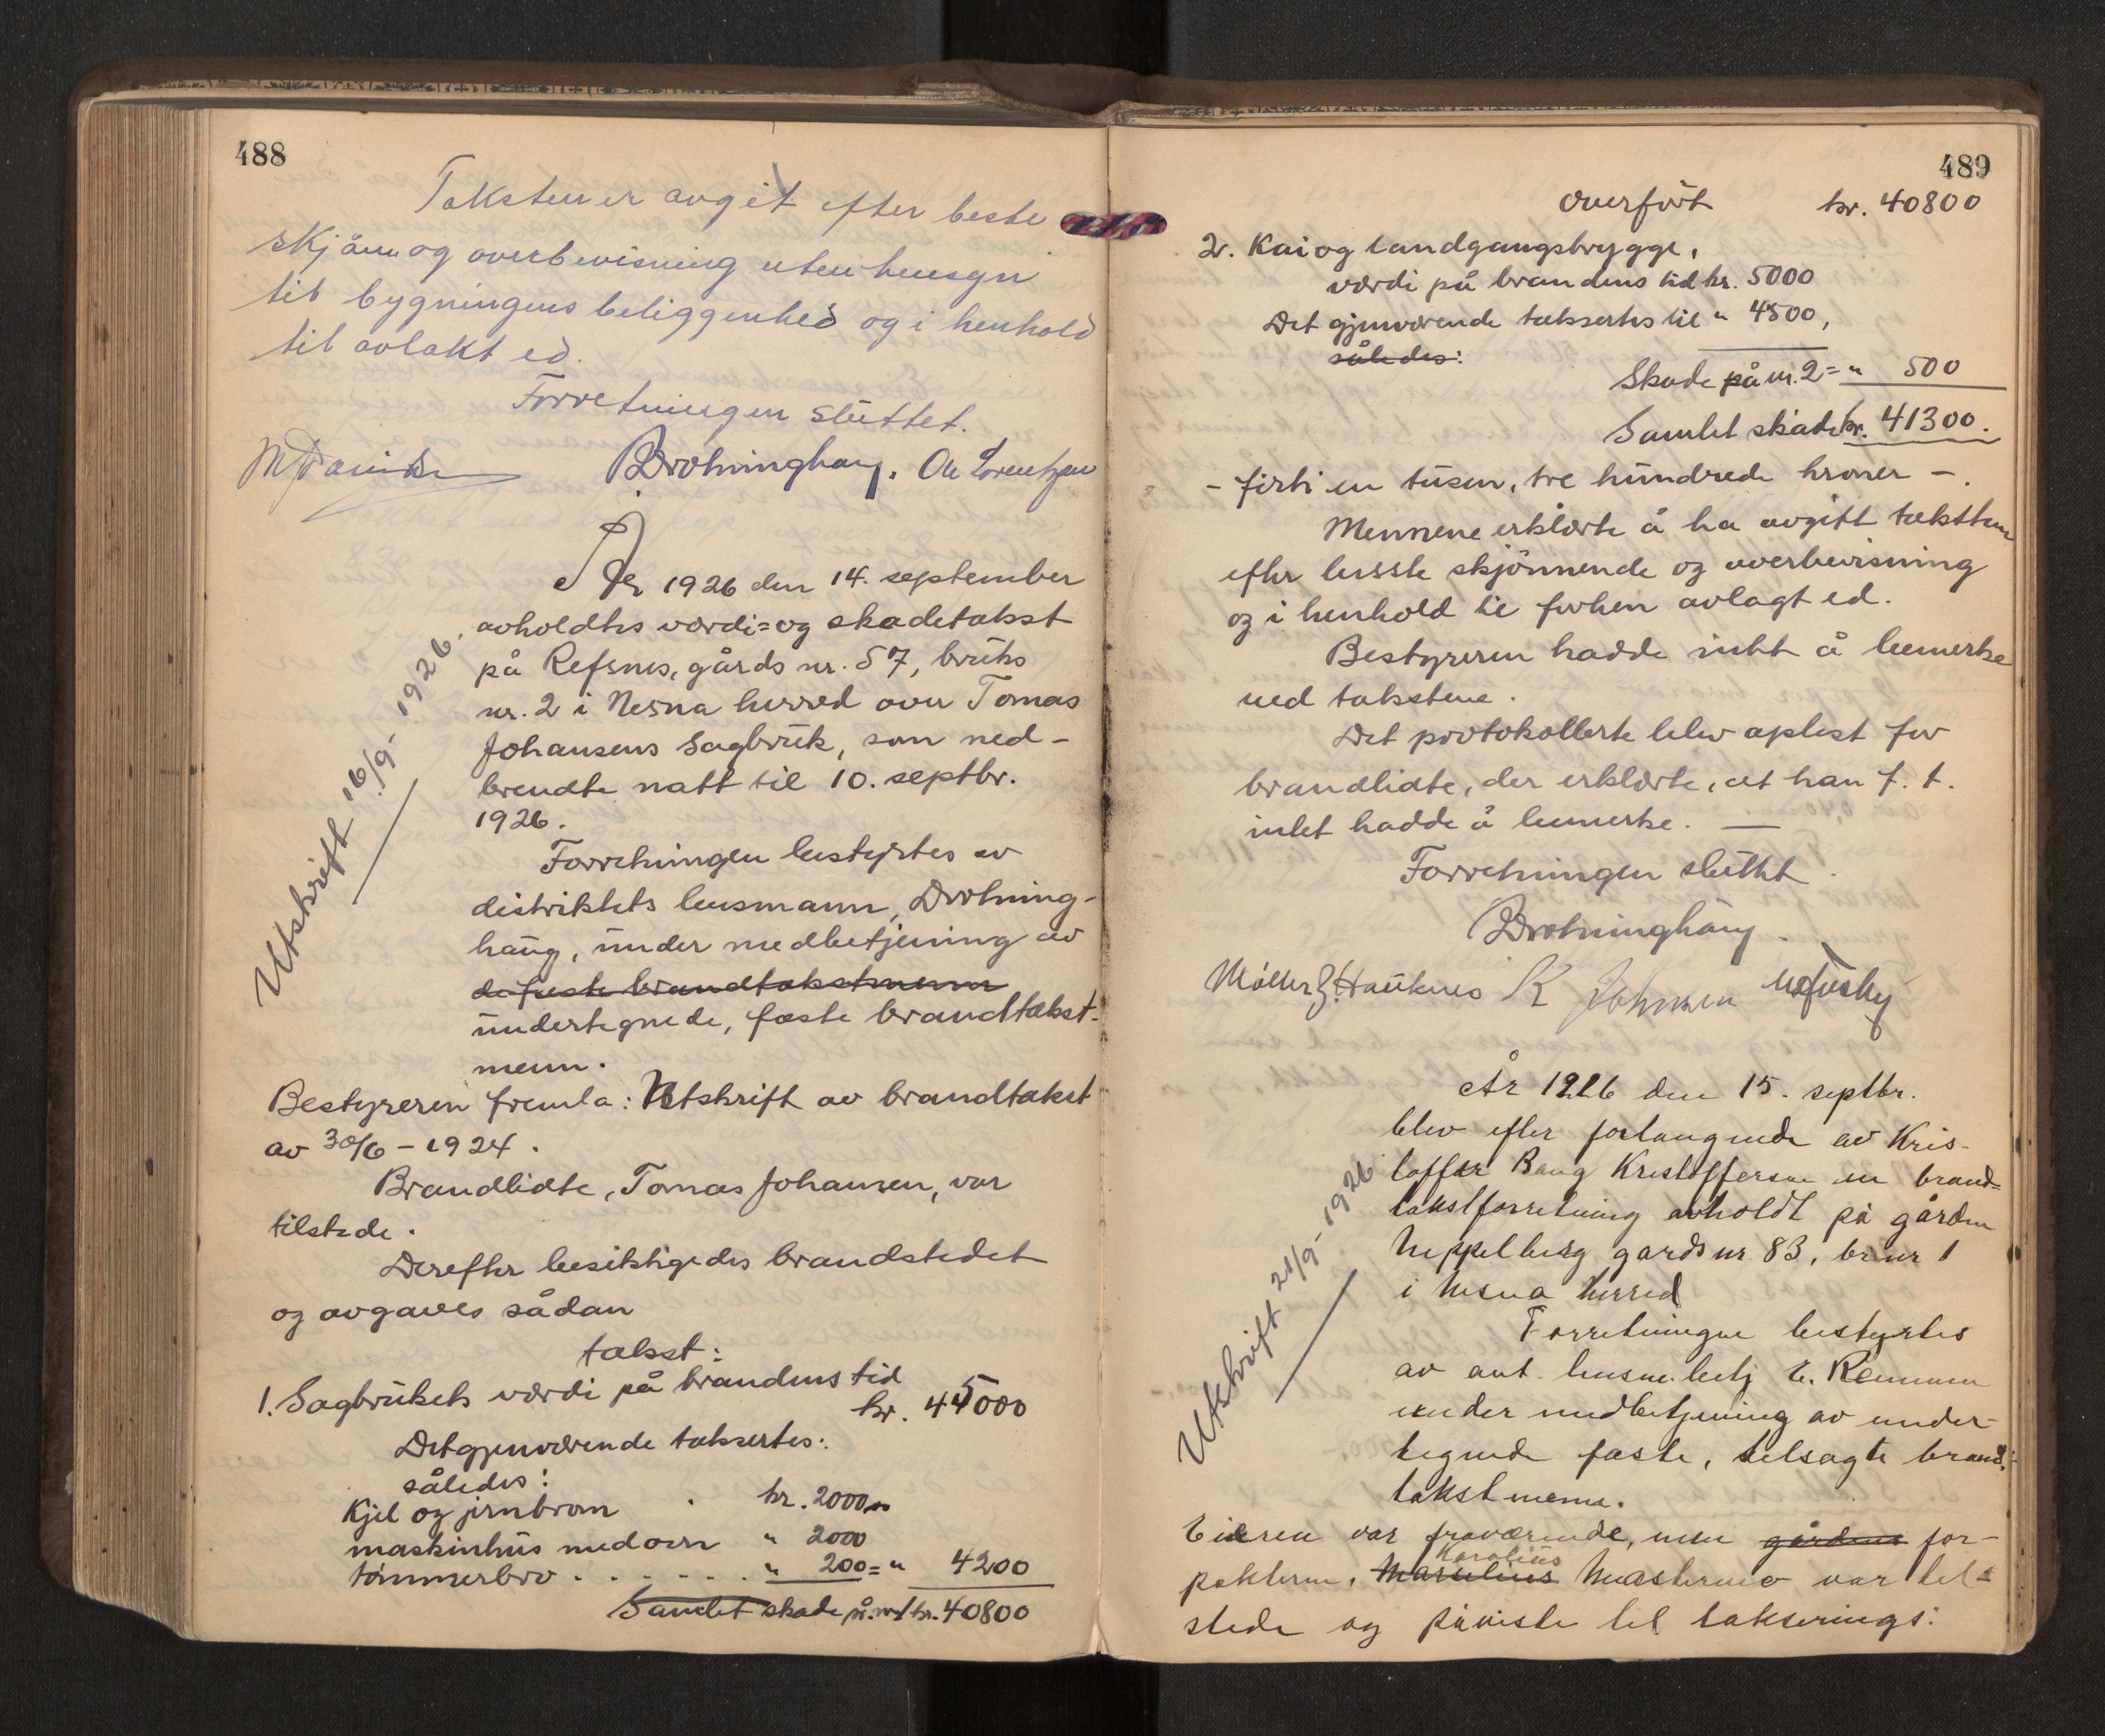 488
Taksten er avgit efter beste
skjøn og overbevisning uten hensyn
til bygningens beliggenhed og i henhold
til avlakt ed.
Forretningen sluttet.
Drotninghaug. Ole Lorentzen
År 1926 den 14. september
avholdtes værdi= og skadetakst
på Refsnes, gårds nr. 57, bruks
nr. 2 i Nesna herred over Tomas
Johansens Sagbruk, som ned-
brendte natt til 10. septbr.
1926.
Utskrift 16/9- 1926.
Forretningen bestyrtes av
distriktets lensmann, Drotning-
haug, under medbetjening av
de faste brandtakstmenn
undertegnede, faste brandtakst-
menn.
Bestyreren fremla: Utskrift av brandtakst
av 30/6 - 1924.
Brandlidte, Tomas Johansen, var
tilstede.
Derefter besiktigedes brandstedet
og avgaves sådan
takst:
1. Sagbrukets værdi på brandens tid
kr. 45000
Det gjenværende taksertes:
således:
Kjel og jernbrom . kr. 2000
maskinhus med ovn " 2000
tømmerbro . . . . . . " 200 = " 4200
Samlet skade på nr 1 kr. 40800
489
Overført kr. 40800
2. Kai og landgangsbrygge,
værdi på brandens tid kr. 5000
Det gjenværende taksertes til " 4500,
således:
Skade på nr. 2 = " 500
Samlet skade kr. 41300.
- firti en tusen, tre hundrede kroner -.
Mennene erklærte å ha avgitt taksten
efter beste skjønnende og overbevisning
og i henhold til forhen avlagt ed.
Bestyreren hadde intet å bemerke
ved takstene.
Det protokollerte blev oplest for
brandlidte, der erklærte, at han f. t.
intet hadde å bemerke. —
Forretningen sluttet.
Drotninghaug.
Møller Z. Hauknes K Johnsen
År 1926 den 15. septbr.
blev efter forlangende av Kris-
toffer Bang Kristoffersen en brand=
takstforretning avholdt på gården
Neppelberg gards nr 83, br nr 1
i Nesna herred
Utskrift 21/9- 1926
Forretningen bestyrtes
av ant. lensm. betj E. Remmen
under medbetjening av under-
tegnede faste, tilsagte brand-
takstmenn.
Eieren var fraværende, men gårdens for-
pakteren, Marselius Karolius var til=
stede og påviste til takserings: